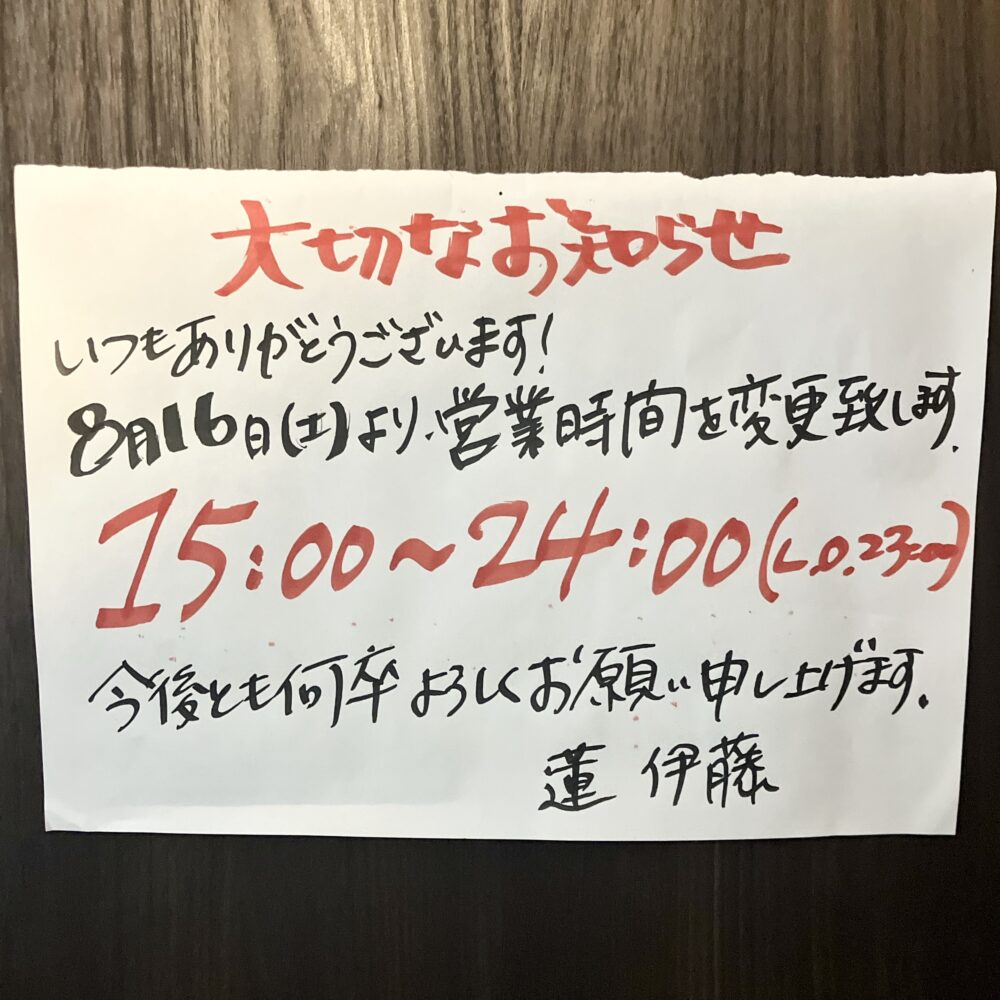 大切なお知らせ
いつもありがとうございます!
8月16日(土)より、営業時間を変更致します.
15:00~24:00(L.O.23:00)
今後とも何卒よろしくお願い申し上げます.
蓮 伊藤